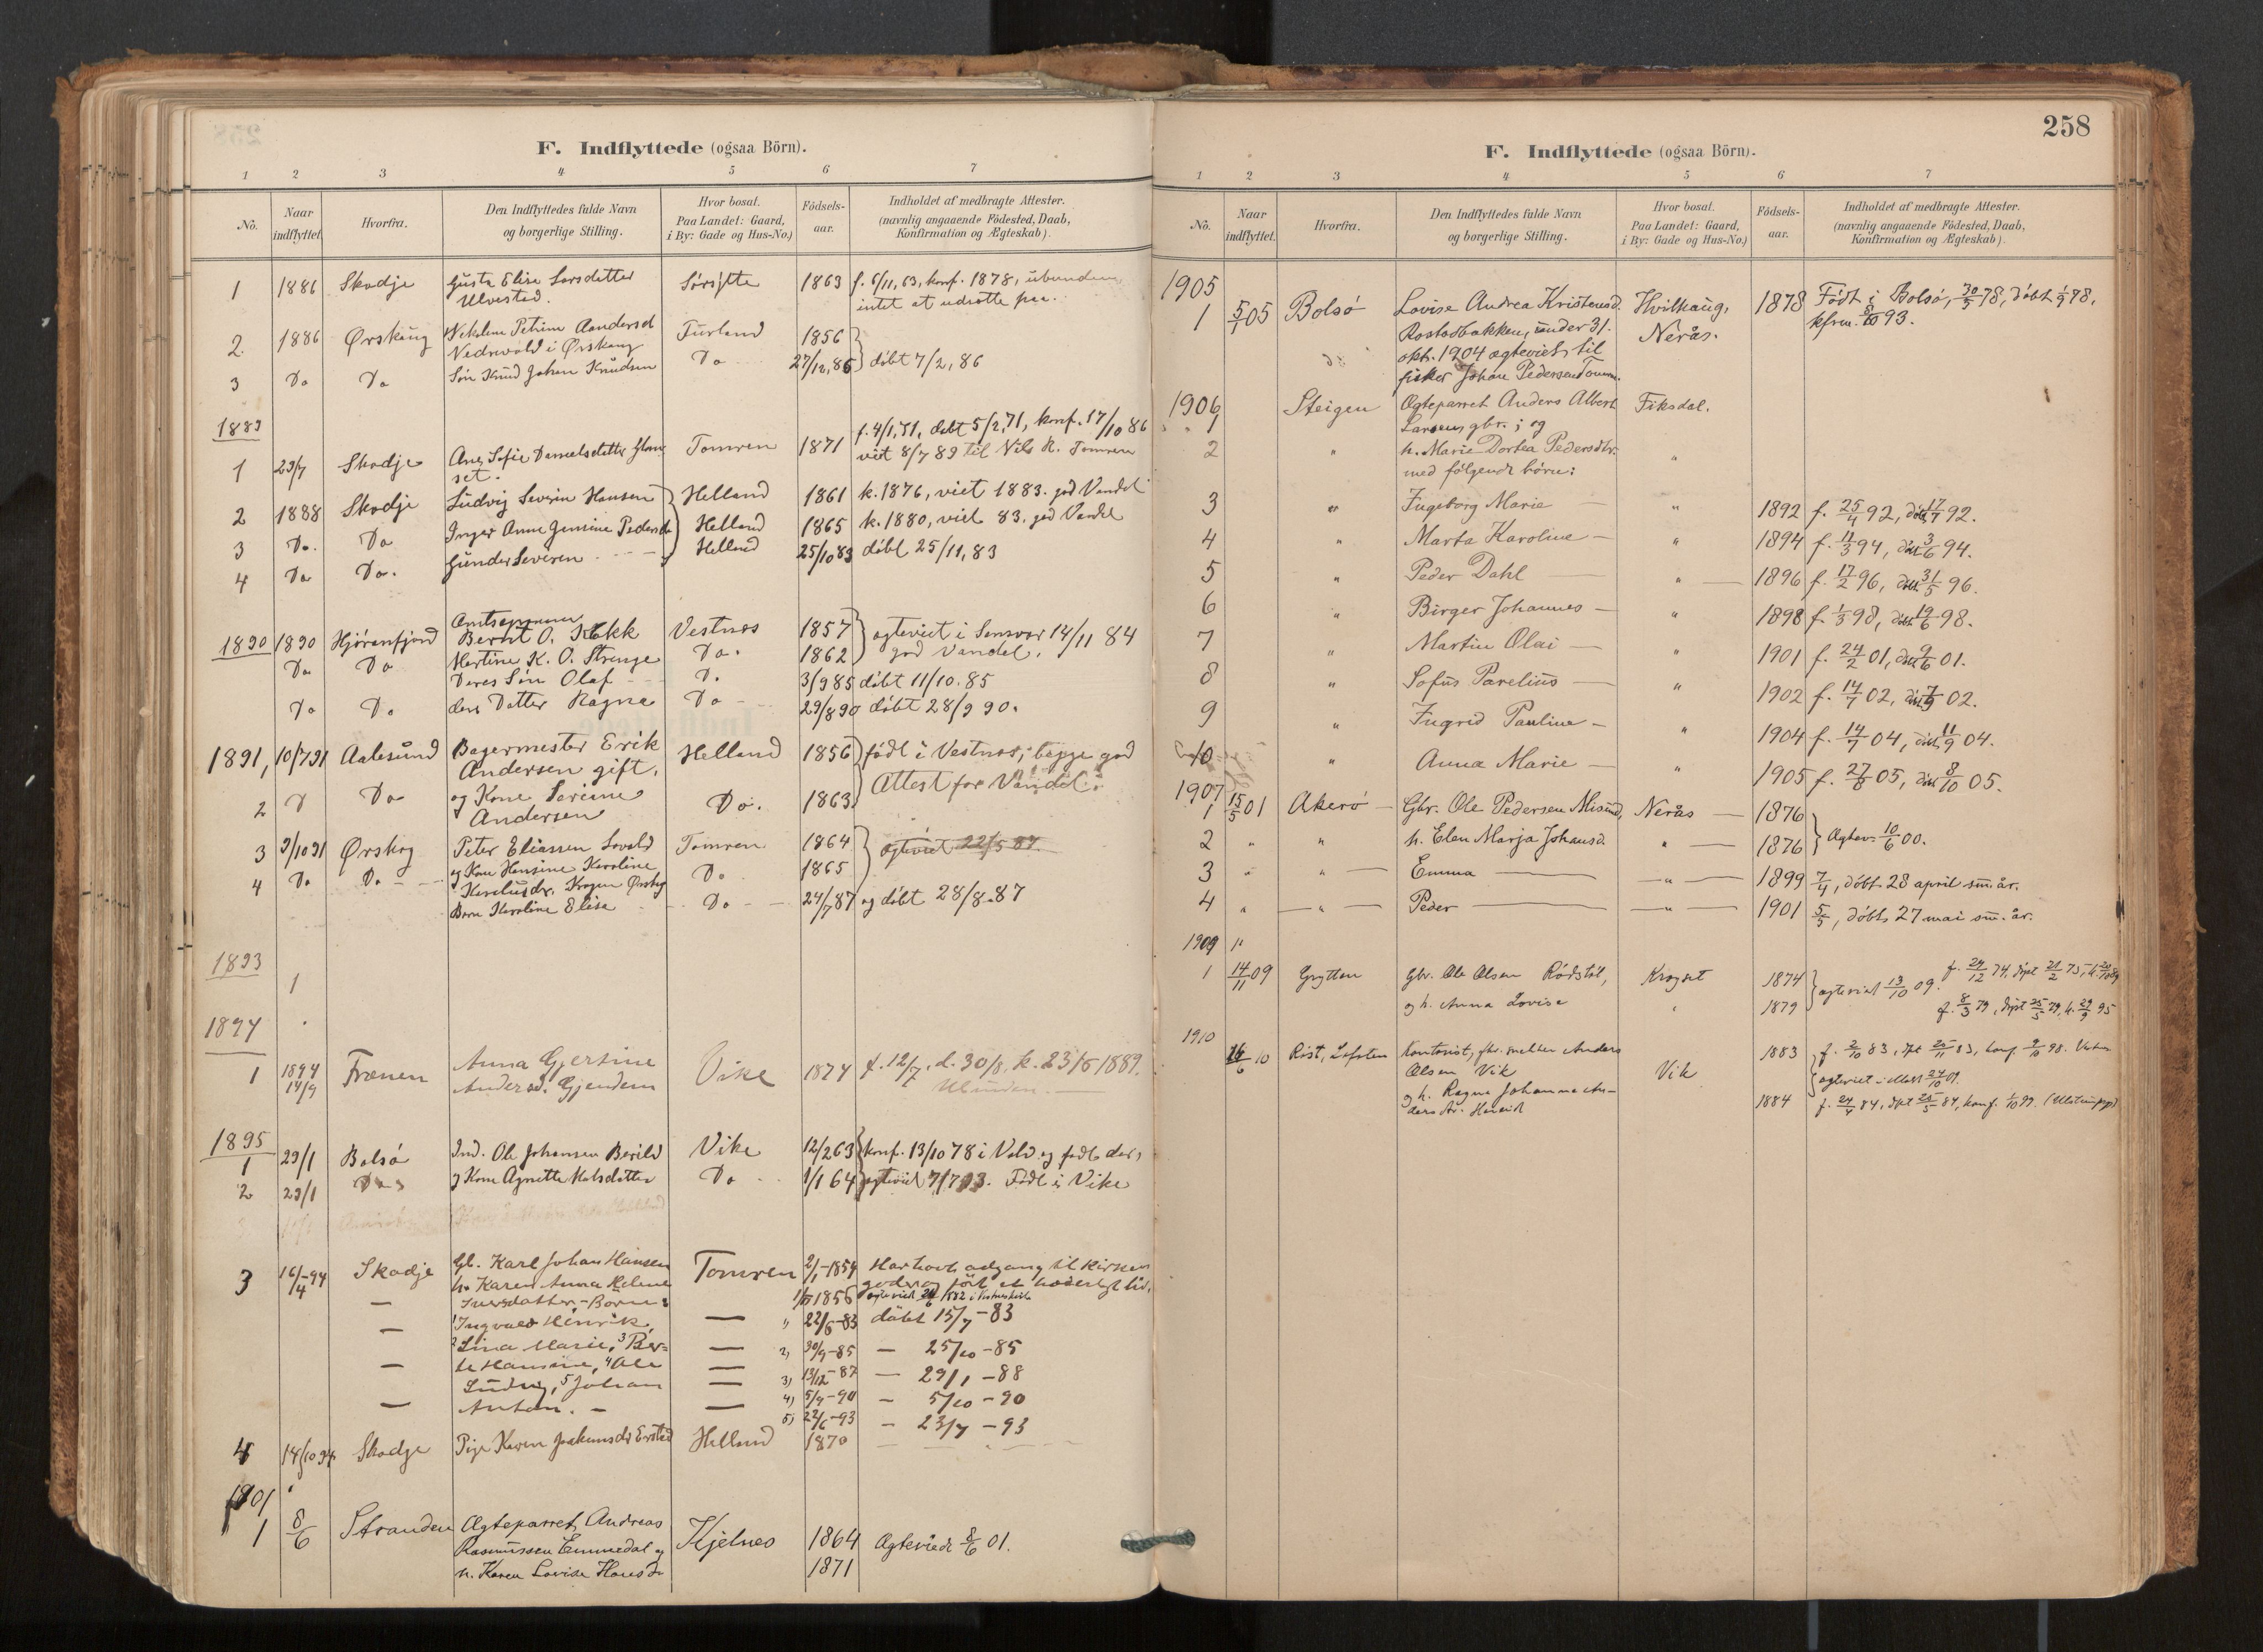 F. Indflyttede (ogsaa Börn).
1 2 3 4 5 6 7
No. Naar indflyttet. Hvorfra. Den Indflyttedes fulde Navn og borgerlige Stilling. Hvor bosat. Paa Landet: Gaard, i By: Gade og Hus-No.) Födsels-aar. Indholdet af medbragte Attester. (navnlig angaaende Födested, Daab, Konfirmation og Ægteskab).
1 1886 Skodje Gusta Elise Larsdatter 1863 f. 6/11, 63, konf. 1878, ubunden
Ulvested. intet at udsætte paa.
2. 1886 Ørskaug Petrine 1856
i Ørskaug
3 Do Do Søn Knud Johan Knudsen Do 27/12, 85 döbt 7/2, 86
1889
f. 4/1, 71, döbt 5/2, 71, konf. 17/10 86
1 23/7 Skodje Ane Sofie Danielsdatter Tomren 1871 viet 8/7 89 til Nils R. Tomren
set.
2 1888 Skodje Ludvig Severin Hansen Helland 1861 k. 1876, viet 1883. god Vandel
3 Do. Do Inger Anne Jensine Pedersd Helland 1865 k. 1880, viet 83. god Vandel
4 Do Do. Gunder Severen Helland 25/10 83 döbt 25/11, 83
1890 1890 Hjörenfjord Bernt O. Vestnes 1857 ægteviet i 14/11 84
Do Do Martine K. O. Strenge Do. 1862 god Vandel.
Deres Søn Olaf D. 3/9 85 döbt 11/10. 85
Do Do deres Datter Ragna Do 29/8 90 döbt 28/9 90.
1891, 10/7 91 Aalesund Bagermester Erik Helland 1856 födt i Vestnes, begge god
Andersen gift. Attest for Vandel.
2 D Do og Kone Serine Do. 1863
Andersen
3 9/10 91 Ørskog Peter Eliassen Tomren 1864 ægteviet 22/5 87.
4 Do Do og Kone Hansine Karoline Do 1865
Barn Karoline Elise Do 24/7 87 og döbt 28/8. 87
1893
1
1894
1 1894 14/9 Frænen Anna Gjertine Vike 1874 f. 12/7, d. 30/8, k. 23/6 1889.
Andersd. Gjendem
1895
1 29/1 Bolsö Ind. Ole Johansen Berild Vike 12/2 63 konf. 13/10 78 i Vold og födt der,
2 29/1 Do og Kone Agnette Matsdatter Do 1/1 64 ægteviet 7/7 93. Födt i Vike
3 16/4-94 Skodje Gb. Karl Johan Hansen Tomren 2/1-1854 Har havt adgang til kirkens
h. Karen Anna Helene 1856 goder og fört et hæderligt liv.
Iversdatter,- Börn:
— 1 Ingvald Henrik, — 1) 22/5-83 döbt 15/7-83
2 Lina Marie, 3 Ber- — 2) 30/9-85 — 25/10-85
— te Hansine, 4 Ole — 3) 13/12-87 — 29/1-88
Ludvig, 5 Johan — 4) 5/9-90 — 5/10-90
— Anton. — — 5) 22/6-93 — 23/7-93
4 14/10 94 Skodje Pige Karen Joakimsdr Ersted Helland 1870
1901
1 8/6 Stranden Ægteparret Andreas Kjelnes 1864 Ægteviede 8/6 01.
Rasmussen Emmedal og
h. Karen Lovise Hansdr 1871
258
F. Indflyttede (ogsaa Börn).
1 2 3 4 5 6 7
No. Naar indflyttet. Hvorfra. Den Indflyttedes fulde Navn og borgerlige Stilling. Hvor bosat. Paa Landet: Gaard, i By: Gade og Hus-No.) Födsels-aar. Indholdet af medbragte Attester. (navnlig angaaende Födested, Daab, Konfirmation og Ægteskab).
1905
1 5/1 05 Bolsö Lovise Andrea Kristensd. Hvilhaug, 1878 Födt i Bolsö, 30/5 78, döbt 1/9 78,
Rostadbakken, under 31. Nerås. kfrm. 8/10 93.
okt. 1904 ægteviet til
fisker Johan Pedersen Tomren.
1906
1 Steigen Ægteparret Anders Albert Fiksdal.
Larsen, gbr.; og
2 " h. Marie Dortea Pedersdtr. "
med fölgende börn:
3 " Ingeborg Marie — " 1892 f. 25/4 92, döbt 17/7 92.
4 " Marta Karoline — " 1894 f. 11/3 94, döbt 3/6 94.
5 " Peder Dahl — " 1896 f. 17/2 96, döbt 31/5 96.
6 " Birger Johannes — " 1898 f. 1/3 98, döbt 19/6 98.
7 " Martin Olai — " 1901 f. 24/2 01, döbt 9/6 01.
8 " Sofus Parelius — " 1902 f. 14/7 02, döbt 7/9 02.
9 " Ingrid Pauline — " 1904 f. 14/7 04, döbt 11/9 04.
10 " Anna Marie — 1905 f. 27/8 05, döbt 8/10 05.
1907
1 15/5 01 Akerö — Gbr. Ole Pedersen Misund, Nerås — 1876
2 " " h. Elen Marja Johansd. " — 1876 Ægtev. 10/6 00.
3 " " — Emma — " — 1899 7/4, döbt 28 april sm. år.
4 " — " — Peder — " — 1901 5/5, döbt 27 mai sm. år.
1909 "
1 14/11 09 Grytten Gbr. Ole Olsen Rödstöl, 1874 ægteviet 13/10 09. f. 29/12 74, döpt 21/2 75,
og h. Anna Lovise " 1879 f. 8/3 79, döpt 25/5 79, k. 29/9 95
1910
16/6 10 Kontorist, Anders 1883 f. 2/10 83, dpt 25/11 83, konf. 2/10 98.
Olsen Vik Vik ægteviet i 24/10 09.
og h. Ragna Johanna An- 1884 f. 24/4 84, dpt 25/5 84, konf. 1/10 99.
ders dtr.